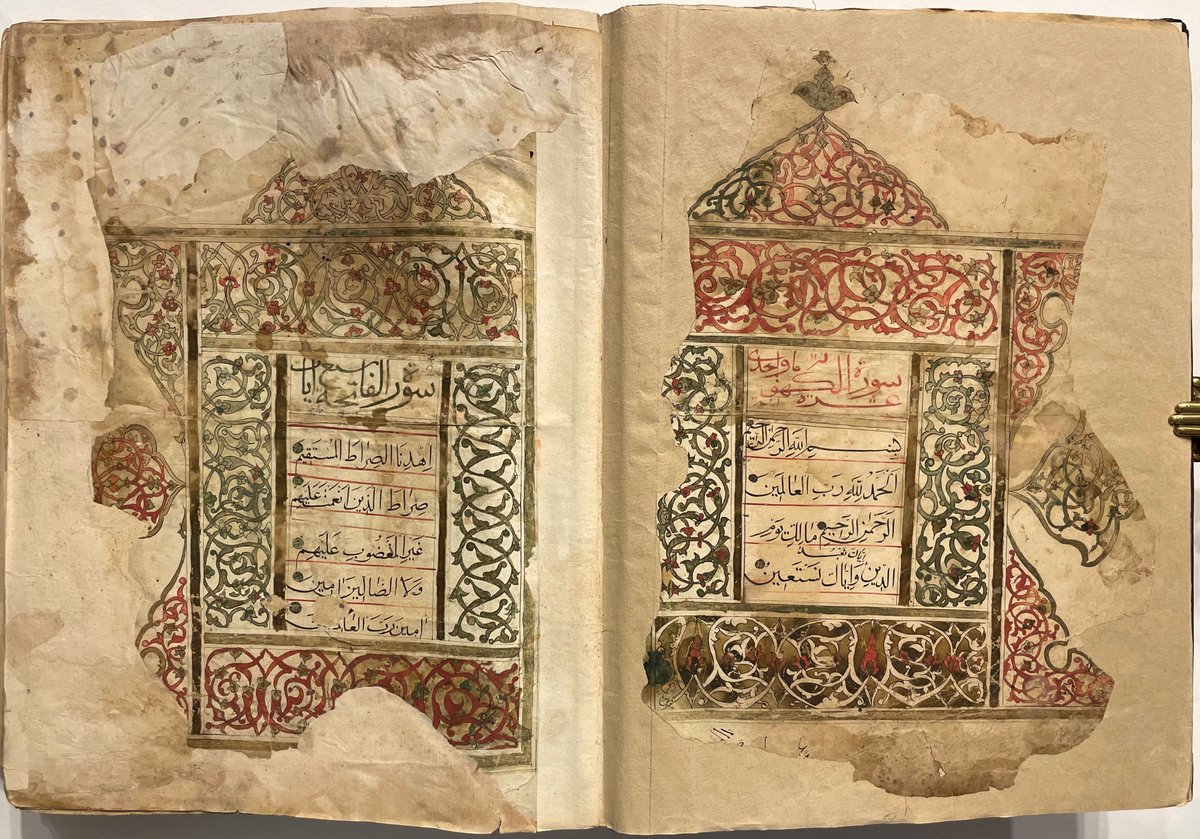 سورة الكهف ماية واحدى
عشرة
بسم الله الرحمن الرحيم
الحمد لله رب العالمين
الرحمن الرحيم مالك يوم
اياك نعبد
الدين واياك نستعين
سورة الفاتحة سبع ايات
اهدنا الصراط المستقيم
صراط الذين انعمت عليهم
غير المغضوب عليهم
ولا الضالين امين
امين رب العالمين